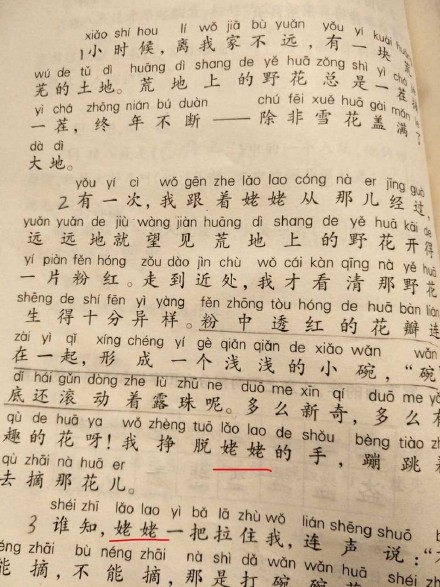 xiǎo shí hou lí wǒ jiā bù yuǎn yǒu yí kuài huāng
1小时候，离我家不远，有一块荒
wú de tǔ dì huāng dì shang de yě huā zǒng shì yì chá
芜的土地。荒地上的野花总是一茬接
yì chá zhōng nián bú duàn chú fēi xuě huā gài mǎn le
一茬，终年不断——除非雪花盖满了
dà dì
大地。
yǒu yí cì wǒ gēn zhe lǎo lao cóng nà er jīng guò
2有一次，我跟着姥姥从那儿经过，
yuǎn yuǎn de jiù wàng jiàn huāng dì shang de yě huā kāi de
远远地就望见荒地上的野花开得
yí piàn fěn hóng zǒu dào jìn chù wǒ cái kàn qīng nà yě huā
一片粉红。走到近处，我才看清那野花
shēng de shí fēn yì yàng fěn zhōng tòu hóng de huā bàn lián
生得十分异样。粉中透红的花瓣连
zài yì qǐ xíng chéng yí gè qiǎn qiǎn de xiǎo wǎn wǎn
在一起，形成一个浅浅的小碗，“碗”
dǐ hái gǔn dòng zhe lù zhū ne duō me xīn qí duō me yǒu
底还滚动着露珠呢。多么新奇，多么有
qù de huā ya wǒ zhèng tuō lǎo lao de shǒu bèng tiào zhe
趣的花呀！我挣脱姥姥的手，蹦跳着
qù zhāi nà huā er
去摘那花儿。
shéi zhī lǎo lao yì bǎ lā zhù wǒ lián shēng shuō
3谁知，姥姥一把拉住我，连声说：“
néng zhāi bù néng zhāi nà shì dǎ wǎn wǎn huā
能摘，不能摘，那是打碗碗花